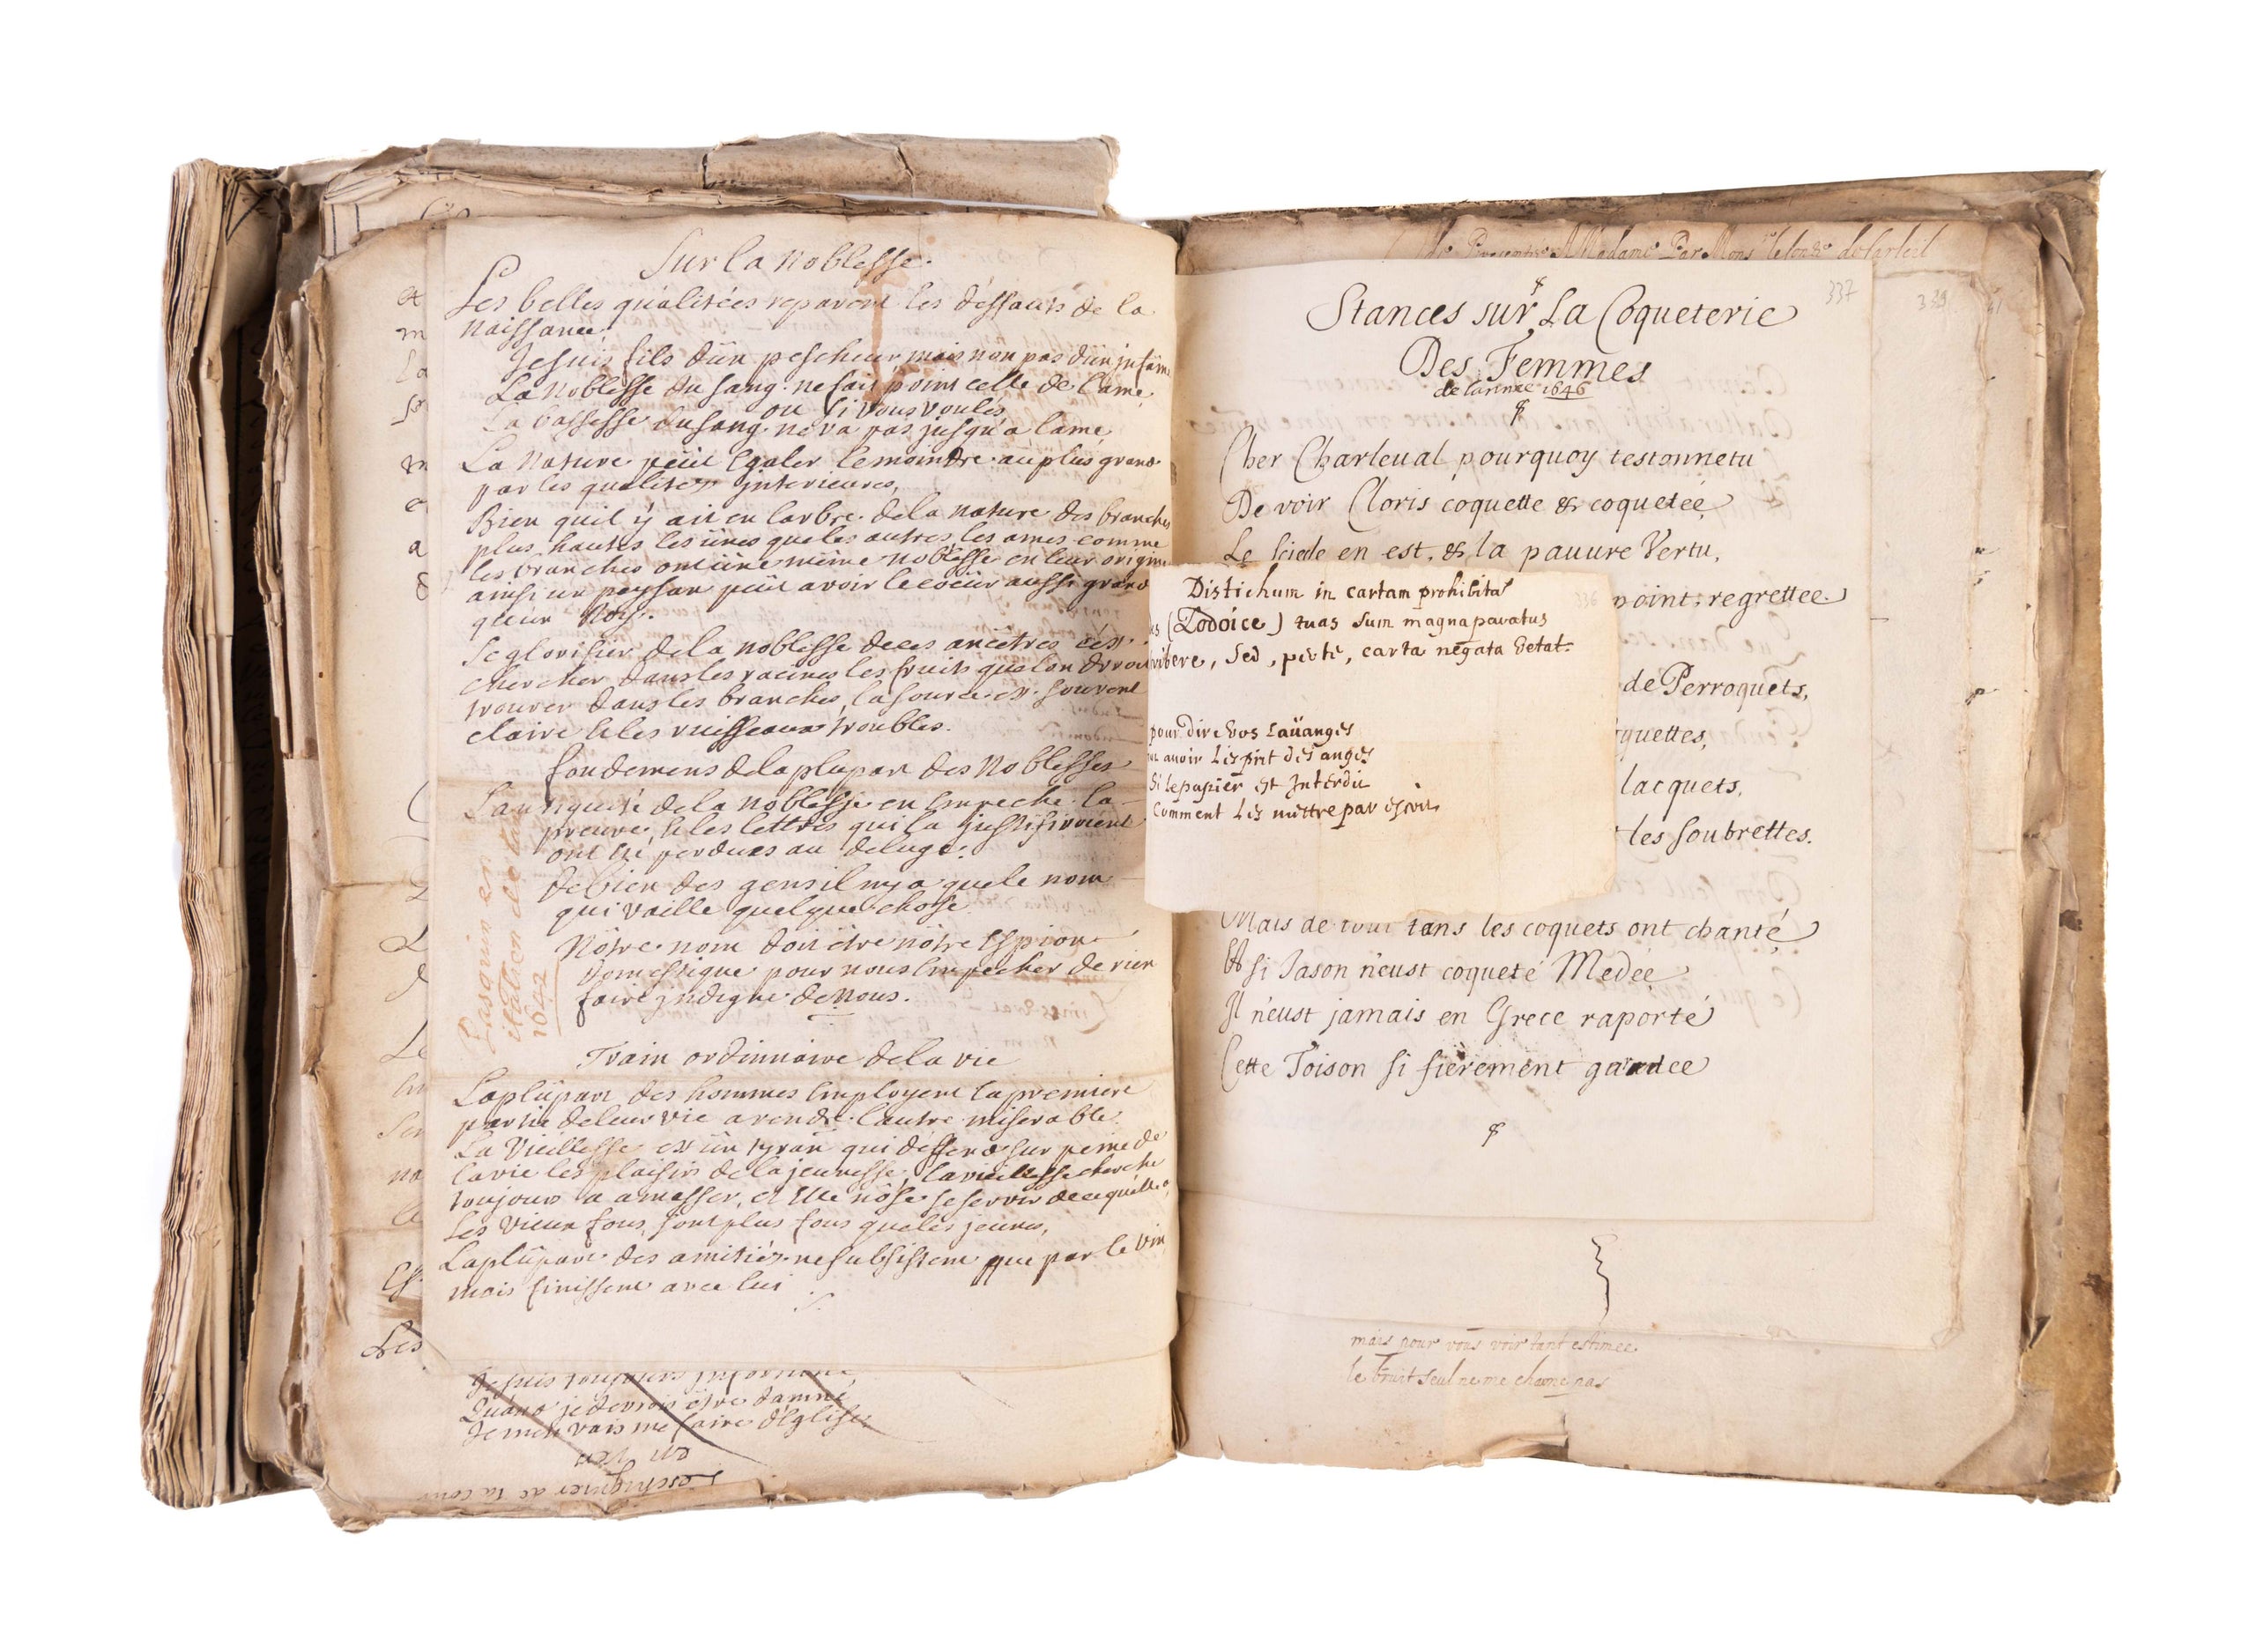 Sur la Noblesse.
Les belles qualitées reparent les deffauts de la
Naissance
Je suis fils d'ün pescheur, mais non pas d'ün infäme
La Noblesse du sang ne fait point celle de l'ame,
ou si vous voulés
La bassesse du sang ne va pas jusqu'a l'ame
La nature peut Egaler le moindre au plus grand
par les qualitez interieures,
Bien quil y ait en l'arbre de la nature des branches
plus hautes les ünes que les autres, les ames comme
les branches ont üne méme Noblesse en leur origine
ainsi un paysan peut avoir le coeur aussi grand
qu'ün Roy.
Se glorifier de la noblesse de ces ancêtres c'est
chercher dans les racines les fruits que lon devroit
trouver dans les branches, la source est souvent
claire & les ruisseaux troubles.
fondemens de la plupart des Noblesses
L'antiquité de la Noblesse en Empeche la
preuve, & les lettres qui la justifiroient
ont été perdues au deluge.
de bien des gens il ny a que le nom
qui vaille quelque chose
Nôtre nom doit être nôtre Espion
domestique pour nous Empecher de rien
faire indigne de Nous.
Pasquin en
italien
1642
Train ordinnaire de la vie
La plüpart des hommes Employent la premiere
partie de leur vie a rendre l'autre miserable.
La Vieillesse est ün tyran qui deffend sur peine de
la vie les plaisirs de la jeunesse; la vieillesse cherche
toujours a amasser, et Elle n'ôse se servir de ce qu'elle a,
Les Vieux fous sont plus fous que les jeunes,
La plüpart des amitiés ne subsistent que par le Vin
mais finissent avec lui
Les
Je suis toujours infortuné,
Quand je devrois être damné
Je m'en vais me faire d'Eglise
Presentée A Madame Par Mons
337
339
Stances sur La Coqueterie
Des Femmes
de l'année 1646
Cher Charleual pourquoy testonnetu
De voir Cloris coquette & coquetée
Le siecle en est, & la pauure Vertu,
point, regrettée.
de Perroquets,
quettes,
lacquets,
les soubrettes.
Mais de tout tans les coquets ont chanté
Et si Jason n'eust coqueté Medée
Il n'eust jamais en Grece raporté
Cette Toison si fierement gardee
336
Distichum in cartam prohibitã
(Lodoice) tuas sum magna paratus
ribere, sed, perte, carta negata Vetat.
pour dire Vos Laüanges
avoir L'esprit des anges
Si le papier est Interdit
Comment Les mettre par escrit
mais pour vous voir tant estimee
le bruit seul ne me charme pas